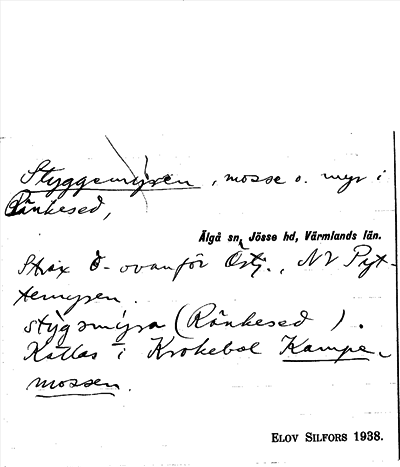 Styggemyren, mosse o. myr i
Ränkesed,
Älgå sn, Jösse hd, Värmlands län.
Strax Ö-ovanför Östj., NV Pyt-
temyren.
stýgsmýra (Ränkesed).
Kallas i Krokebol Kampe-
mossen.
ELOV SILFORS 1938.